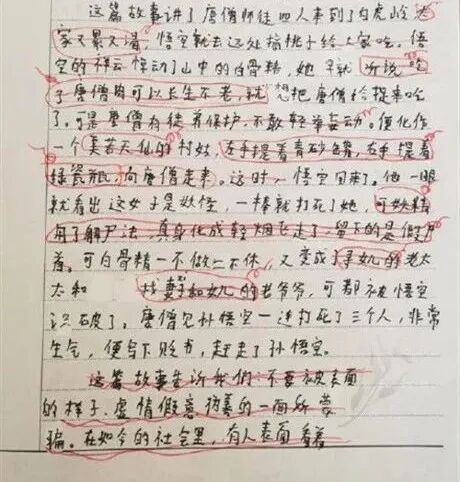 这篇故事讲了唐僧师徒四人来到了白虎岭大
家又累又渴,悟空就去远处摘桃子给大家吃。悟
空的祥云惊动了山中的白骨精,她早就听说吃
了唐僧肉可以长生不老,就想把唐僧给捉来吃
了。可是唐僧有徒弟保护,不敢轻举妄动。便化作
一个美若天仙的村姑,左手提着青砂罐,右手提着
绿瓷瓶,向唐僧走来。这时,悟空回来了。他一眼
就看出这女子是妖怪,一棒就打死了她,可妖精
用了解尸法,真身化成轻烟飞走了,留下的是假尸
首。可白骨精一不做二不休,又变成了寻女的老太
太和 找妻和女儿的老爷爷,可都被悟空
识破了。唐僧见孙悟空一连打死了三个人,非常
生气,便写下贬书,赶走了孙悟空。
这篇故事告诉我们不要被表面
的样子、虚情假意伪善的一面所蒙
骗。在如今的社会里,有人表面看着